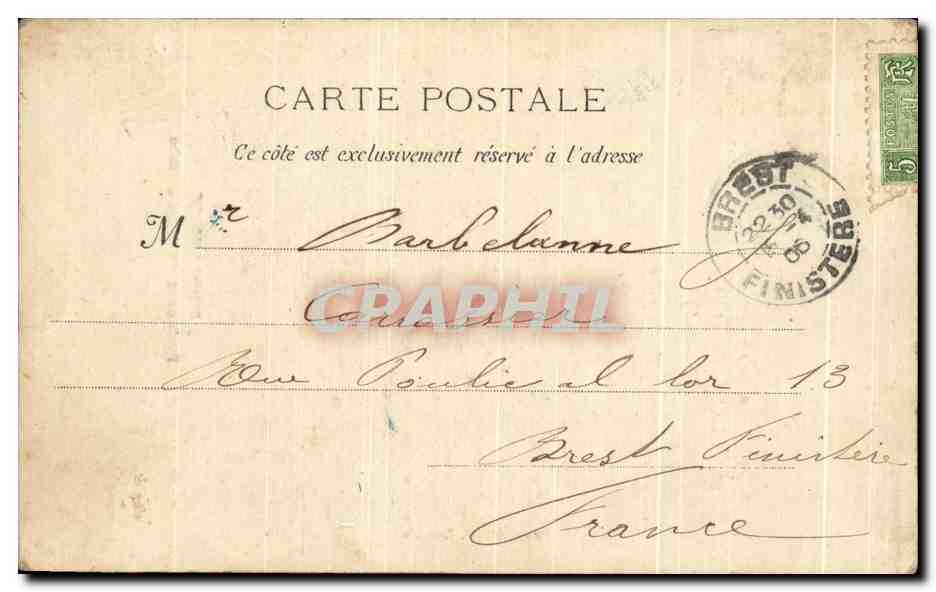 CARTE POSTALE
Ce côté est exclusivement réservé à l'adresse
M r Barbelanne
CPRAPHIL
Rue Poulic al lor 13
Brest Finistère
France
BREST
22 30
06
FINISTERE
5
POSTES
RF